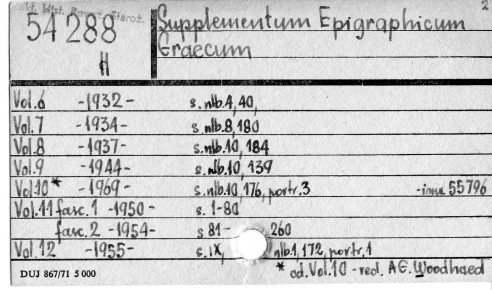 2
54 288 Supplementum Epigraphicum
H Graecum
Vol.6 -1932- s. nlb.4, 40,
Vol.7 -1934- s. nlb.8, 180
Vol.8 -1937- s. nlb.10, 184
Vol.9 -1944- s. nlb.10, 139
Vol.10* -1969- s. nlb.10, 176, portr.3 -inw. 55796
Vol.11 fasc.1 -1950- s. 1-80
fasc.2 -1954- s 81- 260
Vol.12 -1955- s. IX, nlb.1, 172, portr.1
DUJ 867/71 5 000 * od. Vol.10 - red. A.G. Woodhaed